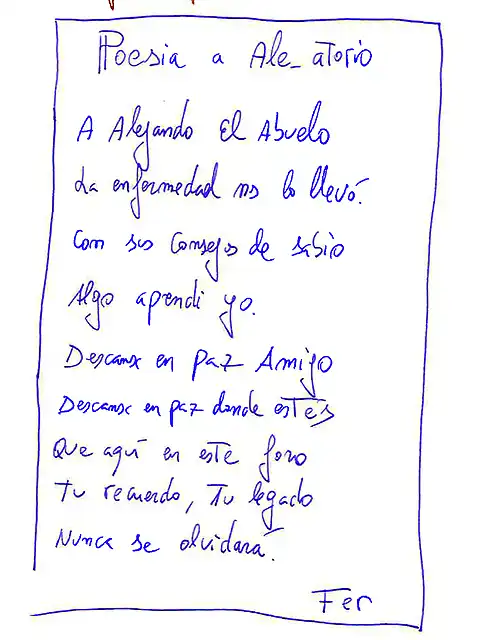 Poesia a Ale_atorio
A Alejando El Abuelo
La enfermedad nos lo llevó.
Con sus Consejos de sabio
Algo aprendi yo.
Descansa en paz Amigo
Descansa en paz donde estés
Que aquí en este foro
Tu recuerdo, Tu legado
Nunca se olvidará.
Fer